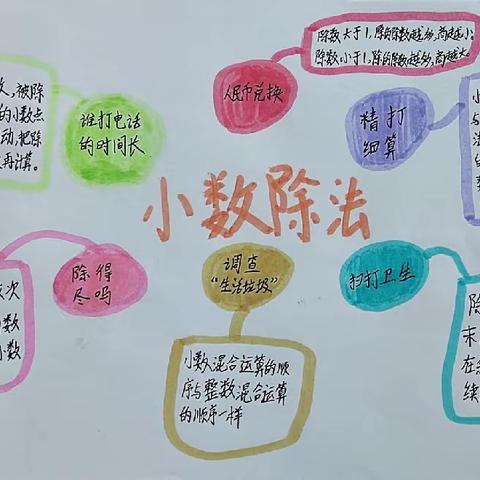 除数大于1,除的除数越多,商越小。
除数小于1,除的除数越多,商越大。
人民币兑换
精打
细算
谁打电话
的时间长
被除
的小数点
动,把除
再计算。
小数除法
除得
尽吗
次
数
小数
调查
“生活垃圾”
小数混合运算的顺
序与整数混合运算
的顺序一样
扫打卫生
除
末
在
续